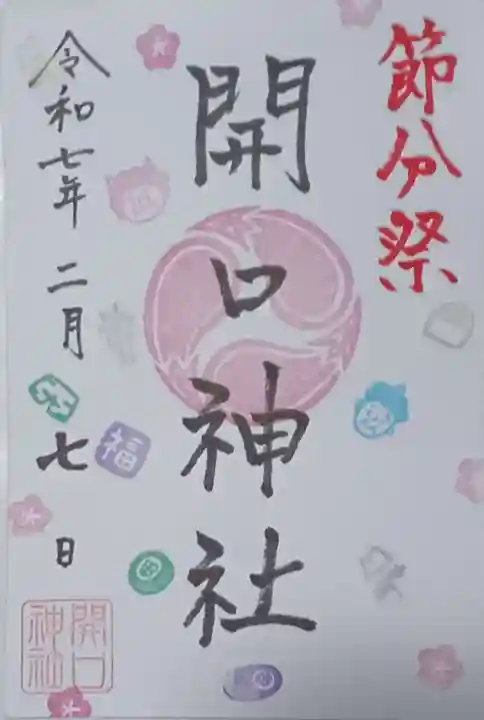 節分祭
開口神社
令和七年 二月 七 日
福
開口
神社